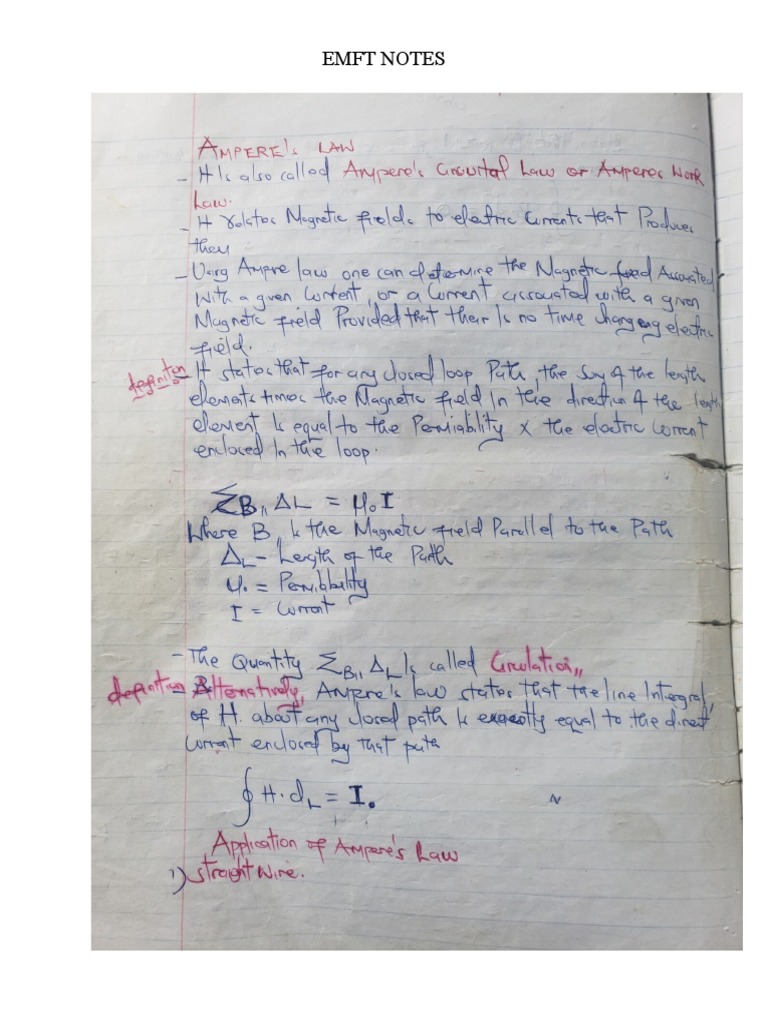 EMFT NOTES
AMPERE's LAW
- It Is also called Ampere's Circuital Law or Amperes Work
Law.
- It relates Magnetic fields to electric currents that Produces
them
- Using Ampre law one can determine the Magnetic Associated
with a given content, or a Current associated with a given
Magnetic field Provided that their Is no time changing electric
field.
definition - It states that for any closed loop Path, the sum of the length
elements times the Magnetic field In the direction of the length
element Is equal to the Permiability x the electric current
enclosed In the loop.
ΣB₁₁ ΔL = μ₀I
Where B₁₁ Is the Magnetic field Parallel to the Path
ΔL - Length of the Path
μ₀ = Permiability
I = Current
- The Quantity ΣB₁₁ ΔL Is called Circulation,,
definition - Alternatively, Ampre's law states that the line Integral,
of H. about any closed path Is exactly equal to the direct
current enclosed by that path
∮H·dL = I.
Application of Ampere's Law
1) straight wire.